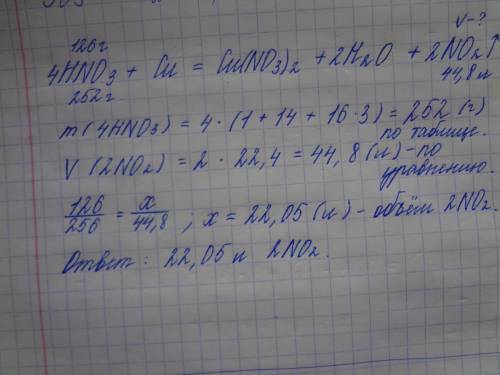 V-?
126г
4HNO3 + Cu = Cu(NO3)2 + 2H2O + 2NO2↑
252г 44,8л
m(4HNO3) = 4·(1 + 14 + 16·3) = 252 (г)
по таблице.
V (2NO2) = 2 · 22,4 = 44,8 (л) - по
уравнению.
126/256 = x/44,8 ; x = 22,05 (л) - объём 2NO2.
Ответ: 22,05 л 2NO2.